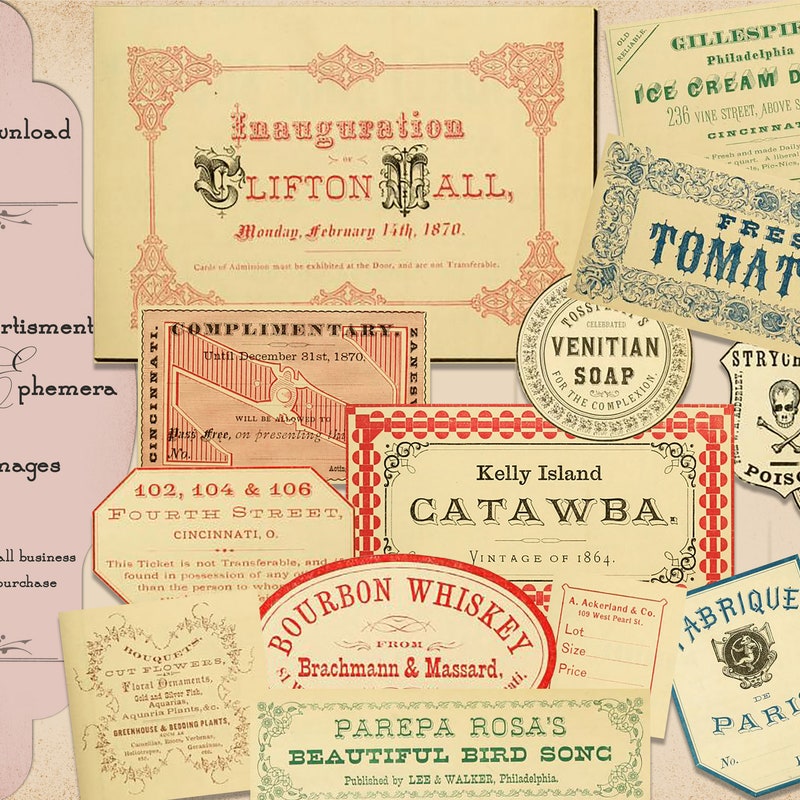 wnload
ertisment
Ephemera
mages
all business
purchase
Inauguration
OF
CLIFTON HALL,
Monday, February 14th, 1870.
Cards of Admission must be exhibited at the Door, and are not Transferable.
OLD
RELIABLE.
GILLESPIE
Philadelphia
ICE CREAM D
236 VINE STREET, ABOVE S
CINCINNAT
Fresh and made Daily
quart. A liberal
ls, Pic-Nics,
FRES
TOMAT
COMPLIMENTARY.
Until December 31st, 1870.
CINCINNATI.
ZANESV
WILL BE ALLOWED TO
Pass Free, on presenting thi
No.
Actin
CELEBRATED
VENITIAN
SOAP
FOR THE COMPLEXION.
STRYCH
POISO
Kelly Island
CATAWBA.
VINTAGE OF 1864.
102, 104 & 106
FOURTH STREET,
CINCINNATI, O.
This Ticket is not Transferable, and if
found in possession of any o
than the person to who
BOURBON WHISKEY
FROM
Brachmann & Massard,
A. Ackerland & Co.
109 West Pearl St.
Lot
Size
Price
BOUQUETS,
CUT FLOWERS,
Floral Ornaments,
Gold and Silver Fish,
Aquarias,
Aquaria Plants, &c.
GREENHOUSE & BEDDING PLANTS,
SUCH AS
Camellias, Roses, Verbenas,
Heliotropes, Geraniums,
etc. etc.
PAREPA ROSA'S
BEAUTIFUL BIRD SONG
Published by LEE & WALKER, Philadelphia.
FABRIQUE
DE
PARI
No.